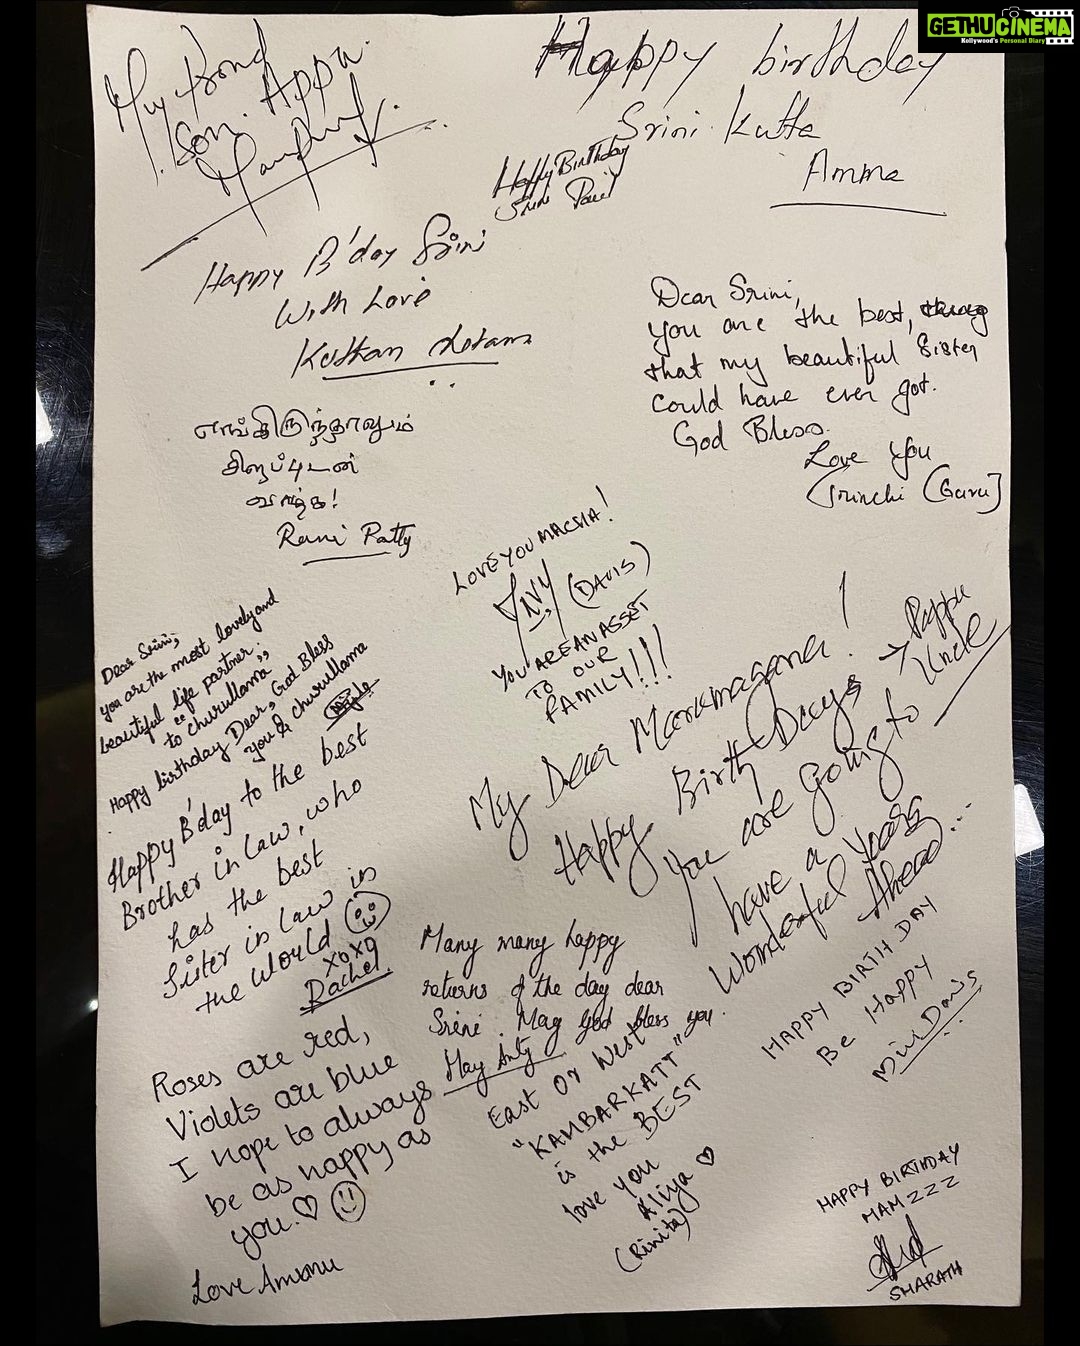 GETHU CINEMA
Kollywood's Personal Diary
My
Son. Appa
Happy birthday
Srini Kutta
Amma
Happy Birthday
Srini
Happy B'day Srini
With Love
Dear Srini,
you are the best, thing
that my beautiful Sister
could have ever got.
God Bless.
Love You
Srinchi (Guru)
எங்கிருந்தாலும்
சிறப்புடன்
வாழ்க!
Rani Patty
LOVE YOU MACHA!
(DAVIS)
YOU ARE AN ASSET
TO OUR
FAMILY!!!
Dear Srini,
you are the most lovely and
beautiful life partner.
to "churullama"
Happy birthday Dear, God Bless
you & churullama
My Dear Marumagane!
Happy Birth Days
→ Pappu
Uncle
You are going to
have a
Wonderful Years
Ahead...
Happy B'day to the best
Brother in law, who
has the best
Sister in law in
the world
XOXO
Rachel
Many many happy
returns of the day dear
Srini. May God bless you.
May Anty
HAPPY BIRTH DAY
Be Happy
Mini Davis
Roses are red,
Violets are blue
I hope to always
be as happy as
you. ♡
Love Ammu
East Or West
"KAMBARKATT"
is the BEST
love you
Aliya ♡
(Rinita)
HAPPY BIRTHDAY
MAMZZZ
SHARATH